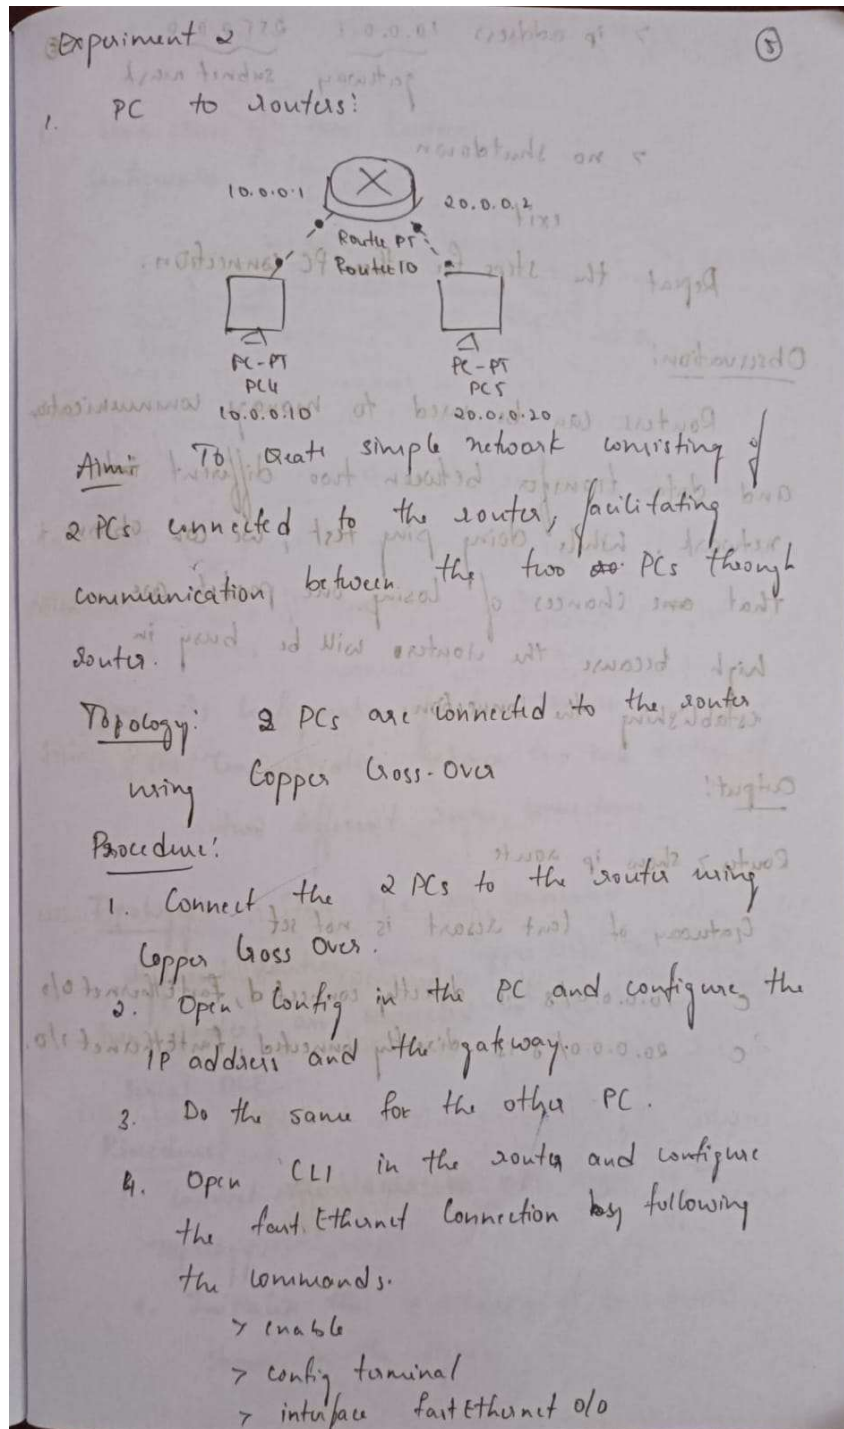 Experiment 2
5
1. PC to routers:
10.0.0.1
20.0.0.2
Router PT
Router10
PC-PT
PC4
10.0.0.10
PC-PT
PC5
20.0.0.20
Aim: To Create simple network consisting of
2 PCs connected to the router, facilitating
communication between the two PCs through
router.
Topology: 2 PCs are connected to the router
using Copper Cross-Over
Procedure:
1. Connect the 2 PCs to the router using
Copper Cross Over.
2. Open Config in the PC and configure the
IP address and the gateway.
3. Do the same for the other PC.
4. Open CLI in the router and configure
the fast Ethernet Connection by following
the commands.
> enable
> config terminal
> interface fastEthernet 0/0